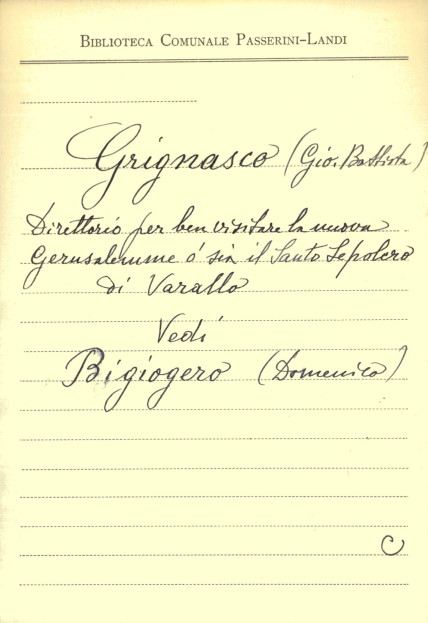 BIBLIOTECA COMUNALE PASSERINI-LANDI
Grignasco (Gio. Battista)
Direttorio per ben visitare la nuova
Gerusalemme ó sia il Santo Sepolcro
di Varallo
Vedi
Bigiogero (Domenico)
C